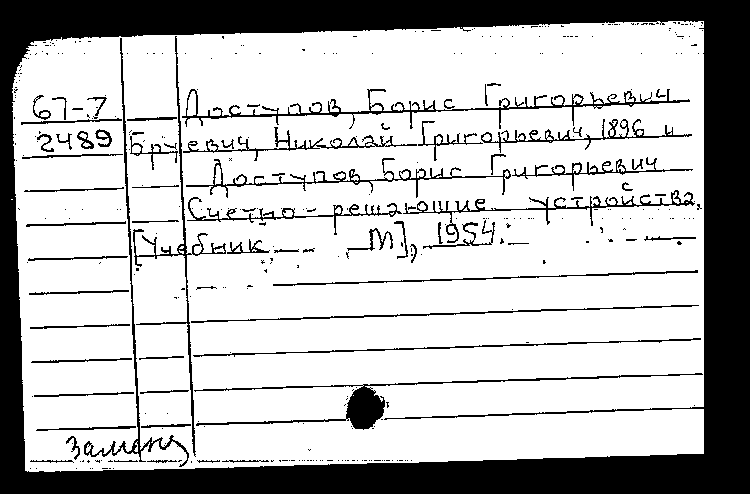 67-7 Доступов, Борис Григорьевич
2489 Бруевич, Николай Григорьевич, 1896 и
Доступов, Борис Григорьевич
Счетно-решающие устройства.
[Учебник М], 1954.